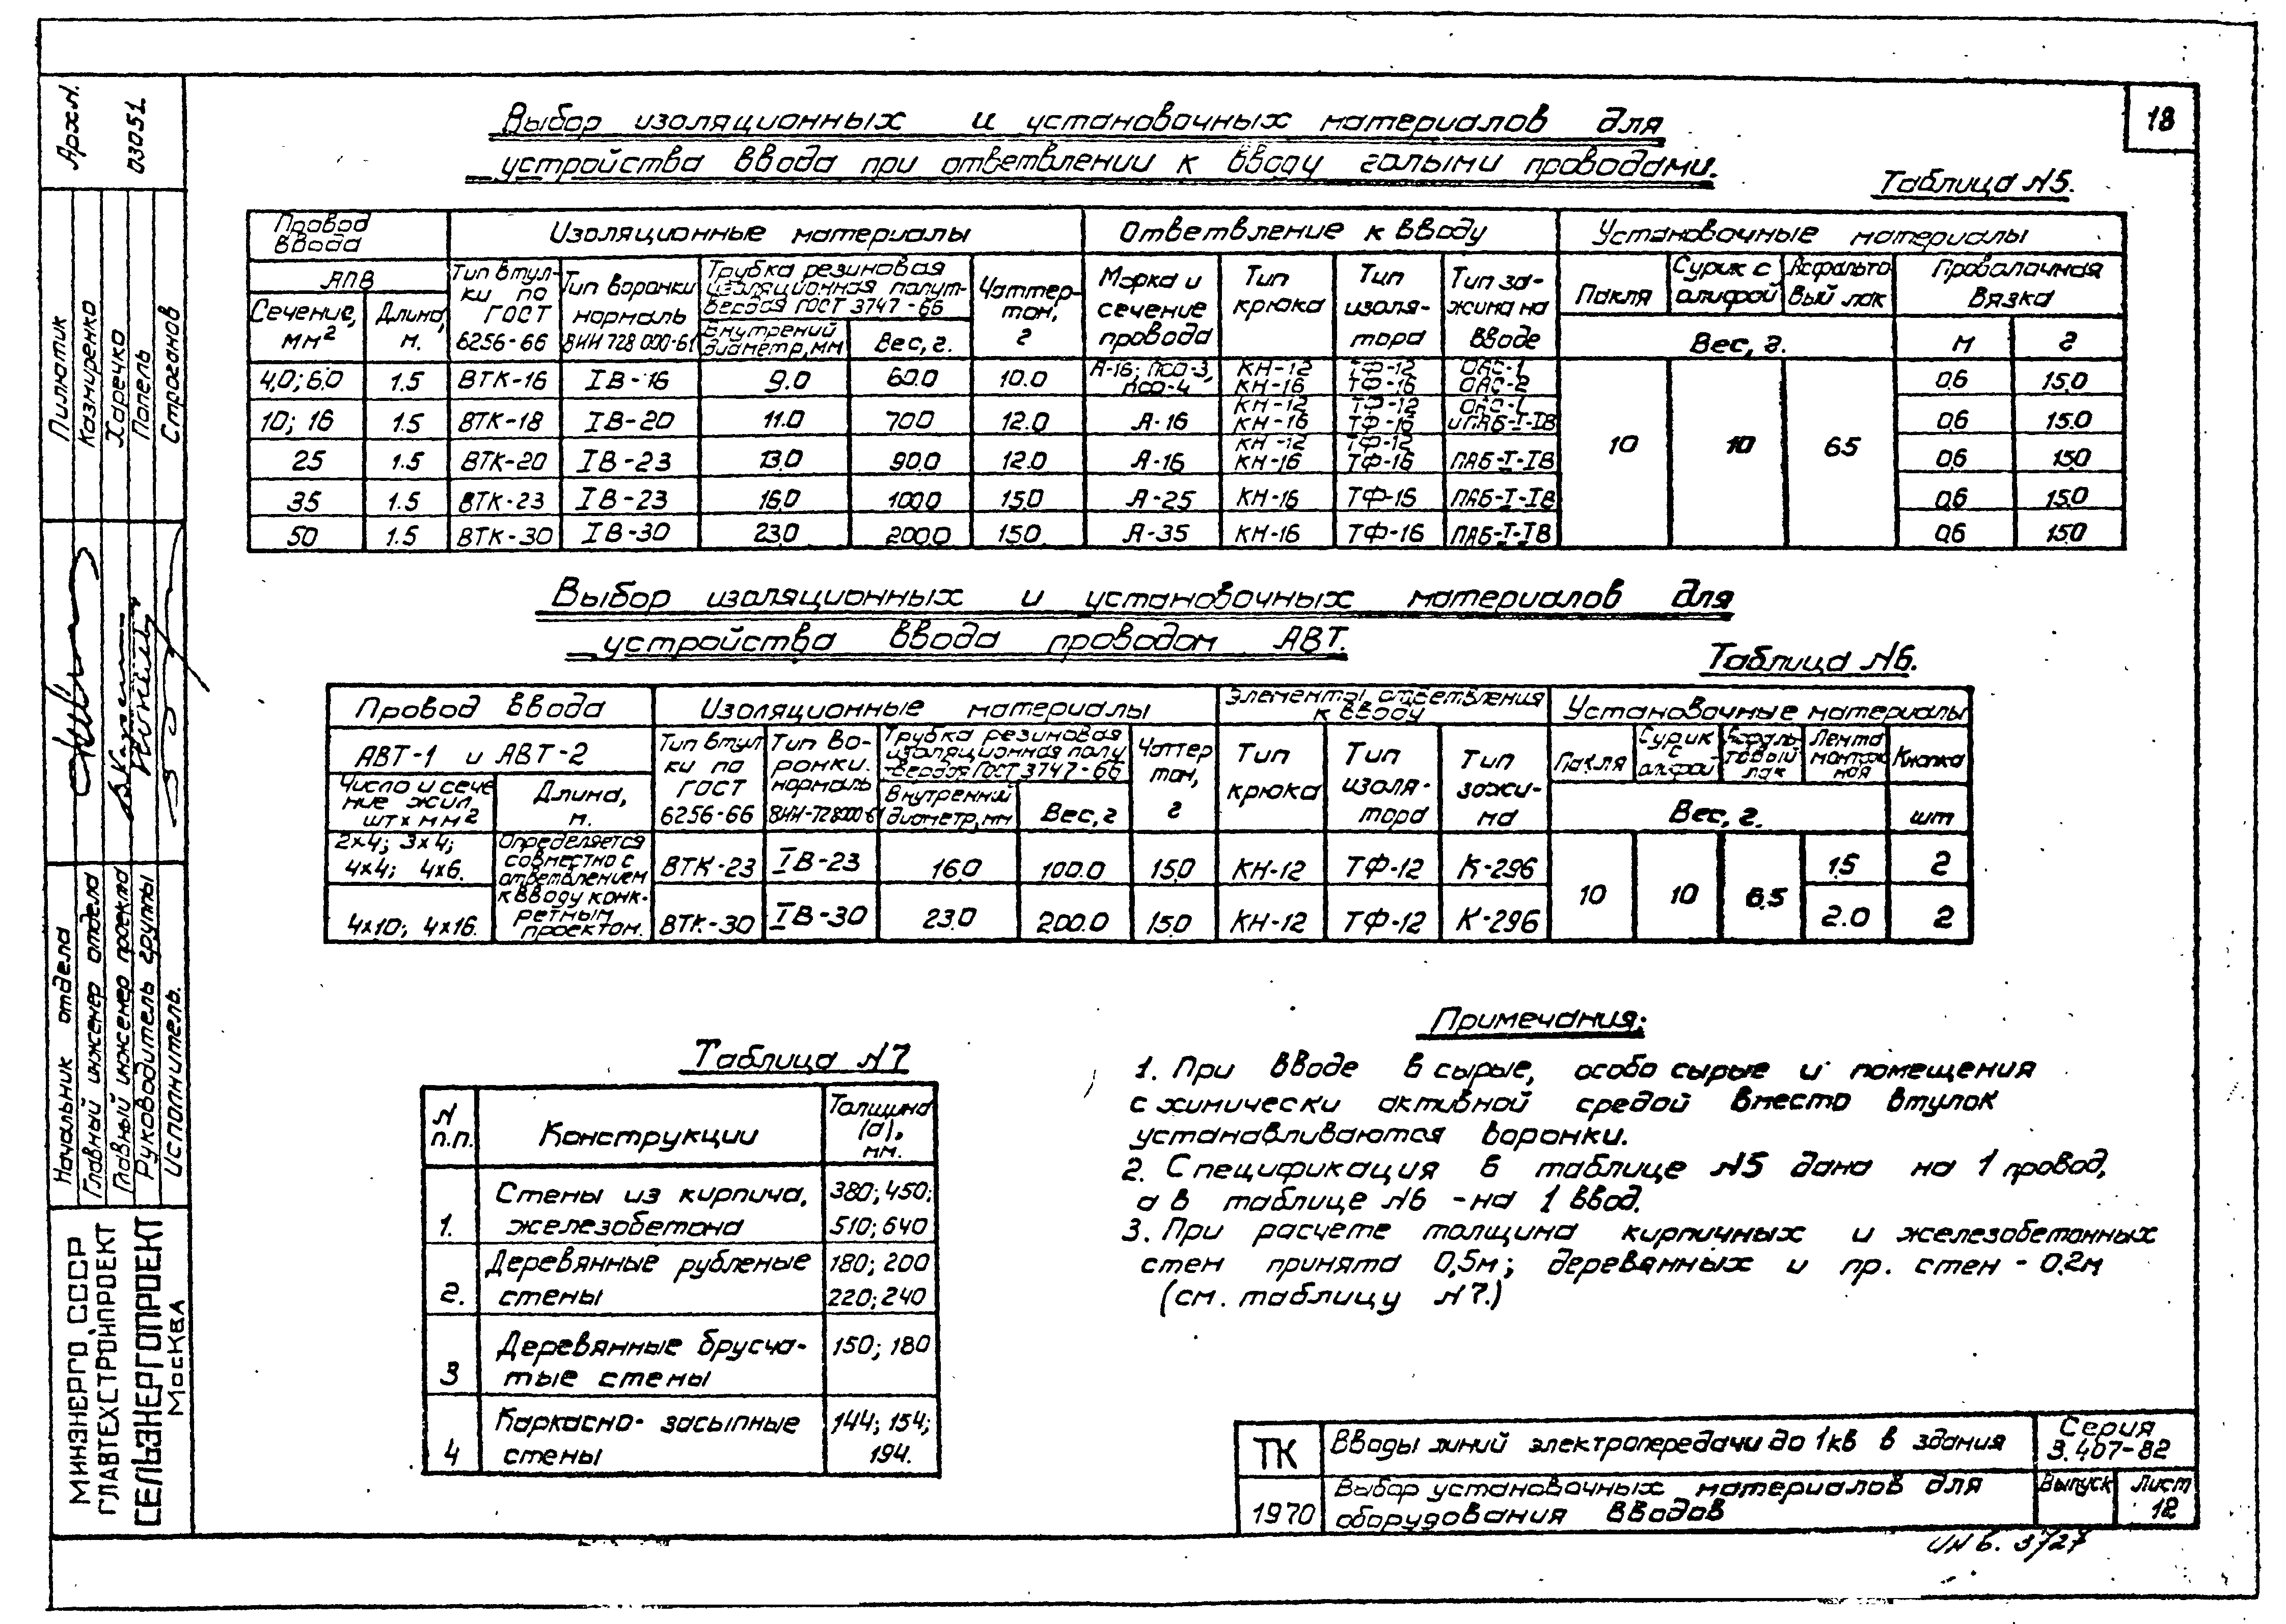 18
Выбор изоляционных и установочных материалов для
устройства ввода при ответвлении к вводу голыми проводами.
Таблица №5.
Провод ввода | Изоляционные материалы | Ответвление к вводу | Установочные материалы
АПВ | Тип втулки по ГОСТ 6256-66 | Тип воронки нормаль | Трубка резиновая изоляционная полутвердая ГОСТ 3747-66 | Чаттертон, г | Марка и сечение провода | Тип крюка | Тип изолятора | Тип зажима на вводе | Пакля | Сурик с олифой | Асфальтовый лак | Проволочная вязка
Сечение, мм² | Длина, м. | Внутрений диаметр, мм | Вес, г. | Вес, г. | м | г
4,0; 6,0 | 1.5 | ВТК-16 | IВ-16 | 9.0 | 60.0 | 10.0 | А-16; ПСО-3, ПСО-4 | КН-12 КН-16 | ТФ-12 ТФ-16 | ОАС-1 ОАС-2 | 10 | 10 | 6.5 | 0.6 | 15.0
10; 16 | 1.5 | ВТК-18 | IВ-20 | 11.0 | 70.0 | 12.0 | А-16 | КН-12 КН-16 | ТФ-12 ТФ-16 | ОАС-1 и ПАБ-I-IВ | 0.6 | 15.0
25 | 1.5 | ВТК-20 | IВ-23 | 13.0 | 90.0 | 12.0 | А-16 | КН-12 КН-16 | ТФ-12 ТФ-16 | ПАБ-I-IВ | 0.6 | 15.0
35 | 1.5 | ВТК-23 | IВ-23 | 16.0 | 100.0 | 15.0 | А-25 | КН-16 | ТФ-16 | ПАБ-I-IВ | 0.6 | 15.0
50 | 1.5 | ВТК-30 | IВ-30 | 23.0 | 200.0 | 15.0 | А-35 | КН-16 | ТФ-16 | ПАБ-I-IВ | 0.6 | 15.0
Выбор изоляционных и установочных материалов для
устройства ввода проводом АВТ.
Таблица №6.
Провод ввода | Изоляционные материалы | Элементы ответвления к вводу | Установочные материалы
АВТ-1 и АВТ-2 | Тип втулки по ГОСТ 6256-66 | Тип воронки. нормаль | Трубка резиновая изоляционная полутвердая ГОСТ 3747-66 | Чаттертон, г | Тип крюка | Тип изолятора | Тип зажима | Пакля | Сурик с олифой | Асфальтовый лак | Лента монтажная | Кнопка
Число и сечение жил, шт х мм² | Длина, м. | Внутренний диаметр, мм | Вес, г | Вес, г. | шт
2х4; 3х4; 4х4; 4х6. | Определяется совместно с ответвлением к вводу конкретным проектом. | ВТК-23 | IВ-23 | 16.0 | 100.0 | 15.0 | КН-12 | ТФ-12 | К-296 | 10 | 10 | 6.5 | 1.5 | 2
4х10; 4х16. | ВТК-30 | IВ-30 | 23.0 | 200.0 | 15.0 | КН-12 | ТФ-12 | К-296 | 2.0 | 2
Таблица №7
N п.п. | Конструкции | Толщина (d), мм.
1. | Стены из кирпича, железобетона | 380; 450; 510; 640
2. | Деревянные рубленые стены | 180; 200 220; 240
3 | Деревянные брусчатые стены | 150; 180
4 | Каркасно-засыпные стены | 144; 154; 194.
Примечания:
1. При вводе в сырые, особо сырые и помещения
с химически активной средой вместо втулок
устанавливаются воронки.
2. Спецификация в таблице №5 дана на 1 провод,
а в таблице №6 - на 1 ввод.
3. При расчете толщина кирпичных и железобетонных
стен принята 0,5м; деревянных и пр. стен - 0,2м
(см. таблицу №7.)
ТК
1970
Вводы линий электропередачи до 1кв в здания
Выбор установочных материалов для
оборудования вводов
Серия
3.407-82
Выпуск
Лист
18
Инв. 3727
Арх.N. 03051
Пилютик
Казмиренко
Харечко
Попель
Строганов
Начальник отдела
Главный инженер отдела
Главный инженер проекта
Руководитель группы
Исполнитель.
МИНЭНЕРГО СССР
ГЛАВТЕХСТРОЙПРОЕКТ
СЕЛЬЭНЕРГОПРОЕКТ
Москва